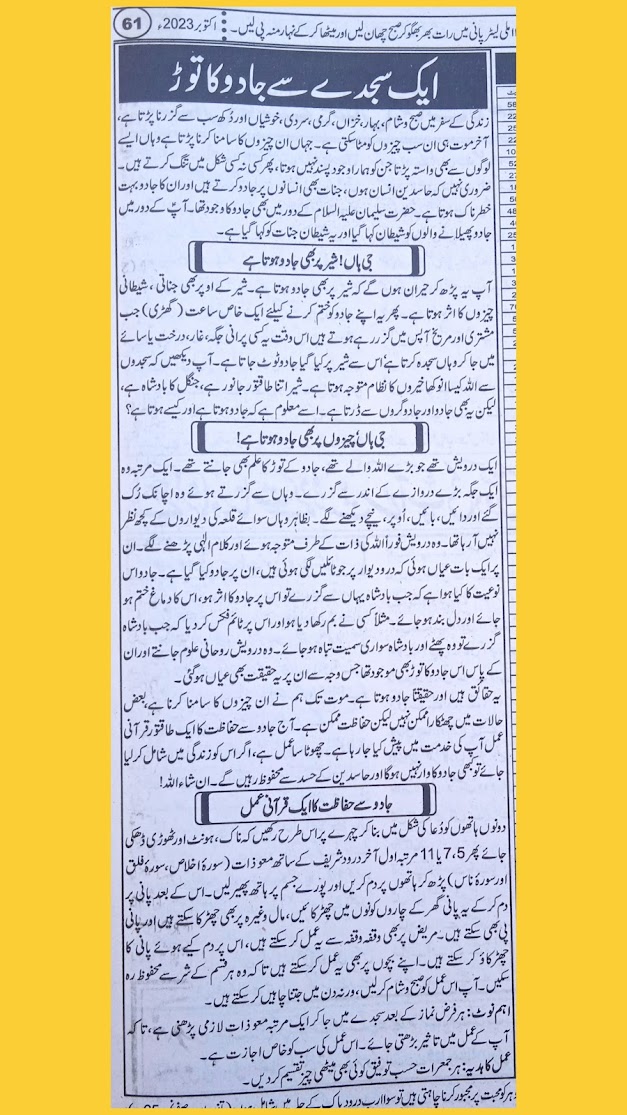 املی لیٹر پانی میں رات بھر بھگو کر صبح چھان لیں اور میٹھا کر کے نہار منہ پی لیں۔ اکتوبر 2023ء 61
ایک سجدے سے جادو کا توڑ
زندگی کے سفر میں صبح و شام، بہار، خزاں، گرمی، سردی، خوشیاں اور دُکھ سب سے گزرنا پڑتا ہے،
آخر موت ہی ان سب چیزوں کو مٹا سکتی ہے۔ جہاں ان چیزوں کا سامنا کرنا پڑتا ہے وہاں ایسے
لوگوں سے بھی واسطہ پڑتا جن کو ہمارا وجود پسند نہیں ہوتا، پھر کسی نہ کسی شکل میں تنگ کرتے ہیں۔
ضروری نہیں کہ حاسدین انسان ہوں، جنات بھی انسانوں پر جادو کرتے ہیں اور ان کا جادو بہت
خطرناک ہوتا ہے۔ حضرت سلیمان علیہ السلام کے دور میں بھی جادو کا وجود تھا۔ آپؑ کے دور میں
جادو پھیلانے والوں کو شیطان کہا گیا اور یہ شیطان جنات کو کہا گیا ہے۔
جی ہاں! شیر پر بھی جادو ہوتا ہے
آپ یہ پڑھ کر حیران ہوں گے کہ شیر پر بھی جادو ہوتا ہے۔ شیر کے اوپر بھی جناتی، شیطانی
چیزوں کا اثر ہوتا ہے۔ پھر یہ اپنے جادو کو ختم کرنے کیلئے ایک خاص ساعت (گھڑی) جب
مشتری اور مریخ آپس میں گزر رہے ہوتے ہیں اس وقت یہ کسی پرانی جگہ، غار، درخت یا سائے
میں جا کر وہاں سجدہ کرتا ہے اس سے شیر پر کیا گیا جادو ٹوٹ جاتا ہے۔ آپ دیکھیں کہ سجدوں
سے اللہ کیسا انوکھا خیروں کا نظام متوجہ ہوتا ہے۔ شیر اتنا طاقتور جانور ہے، جنگل کا بادشاہ ہے،
لیکن یہ بھی جادو اور جادوگروں سے ڈرتا ہے۔ اسے معلوم ہے کہ جادو ہوتا ہے اور کیسے ہوتا ہے؟
جی ہاں چیزوں پر بھی جادو ہوتا ہے!
ایک درویش تھے جو بڑے اللہ والے تھے، جادو کے توڑ کا علم بھی جانتے تھے۔ ایک مرتبہ وہ
ایک جگہ بڑے دروازے کے اندر سے گزرے۔ وہاں سے گزرتے ہوئے وہ اچانک رُک
گئے اور دائیں، بائیں، اُوپر، نیچے دیکھنے لگے۔ بظاہر وہاں سوائے قلعہ کی دیواروں کے کچھ نظر
نہیں آ رہا تھا۔ وہ درویش فوراً اللہ کی ذات کے طرف متوجہ ہوئے اور کلام الٰہی پڑھنے لگے۔ ان
پر ایک بات عیاں ہوئی کہ در و دیوار پر جو ٹائلیں لگی ہوئی ہیں، ان پر جادو کیا گیا ہے۔ جادو اس
نوعیت کا کیا ہوا ہے کہ جب بادشاہ یہاں سے گزرے تو اس پر جادو کا اثر ہو، اس کا دماغ ختم ہو
جائے اور دل بند ہو جائے۔ مثلاً کسی نے بم رکھا دیا ہو اور اس پر ٹائم فکس کر دیا کہ جب بادشاہ
گزرے تو وہ پھٹے اور بادشاہ سواری سمیت تباہ ہو جائے۔ وہ درویش روحانی علوم جانتے اور ان
کے پاس اس جادو کا توڑ بھی موجود تھا جس وجہ سے ان پر یہ حقیقت بھی عیاں ہو گئی۔
یہ حقائق ہیں اور حقیقتاً جادو ہوتا ہے۔ موت تک ہم نے ان چیزوں کا سامنا کرنا ہے، بعض
حالات میں چھٹکارا ممکن نہیں لیکن حفاظت ممکن ہے۔ آج جادو سے حفاظت کا ایک طاقتور قرآنی
عمل آپ کی خدمت میں پیش کیا جا رہا ہے۔ چھوٹا سا عمل ہے، اگر اس کو زندگی میں شامل کر لیا
جائے تو کبھی جادو کا وار نہیں ہوگا اور حاسدین کے حسد سے محفوظ رہیں گے۔ ان شاء اللہ!
جادو سے حفاظت کا ایک قرآنی عمل
دونوں ہاتھوں کو دُعا کی شکل میں بنا کر چہرے پر اس طرح رکھیں کہ ناک، ہونٹ اور ٹھوڑی ڈھکی
جائے پھر 7،5 یا 11 مرتبہ اول آخر درود شریف کے ساتھ معوذات (سورۂ اخلاص، سورۂ فلق
اور سورۂ ناس) پڑھ کر ہاتھوں پر دم کریں اور پورے جسم پر ہاتھ پھیر لیں۔ اس کے بعد پانی پر
دم کر کے یہ پانی گھر کے چاروں کونوں میں چھڑکائیں، مال وغیرہ پر بھی چھڑکا سکتے ہیں اور پانی
پی بھی سکتے ہیں۔ مریض پر بھی وقفہ وقفہ سے یہ عمل کر سکتے ہیں، اس پر دم کیے ہوئے پانی کا
چھڑکاؤ کر سکتے ہیں۔ اپنے بچوں پر بھی یہ عمل کر سکتے ہیں تاکہ وہ ہر قسم کے شر سے محفوظ رہ
سکیں۔ آپ اس عمل کو صبح و شام کر لیں، ورنہ دن میں جتنا چاہیں کر سکتے ہیں۔
اہم نوٹ: ہر فرض نماز کے بعد سجدے میں جا کر ایک مرتبہ معوذات لازمی پڑھنی ہے، تاکہ
آپ کے عمل میں تاثیر بڑھتی جائے۔ اس عمل کی سب کو خاص اجازت ہے۔
عمل کا ہدیہ: ہر جمعرات حسب توفیق کوئی بھی میٹھی چیز تقسیم کر دیں۔